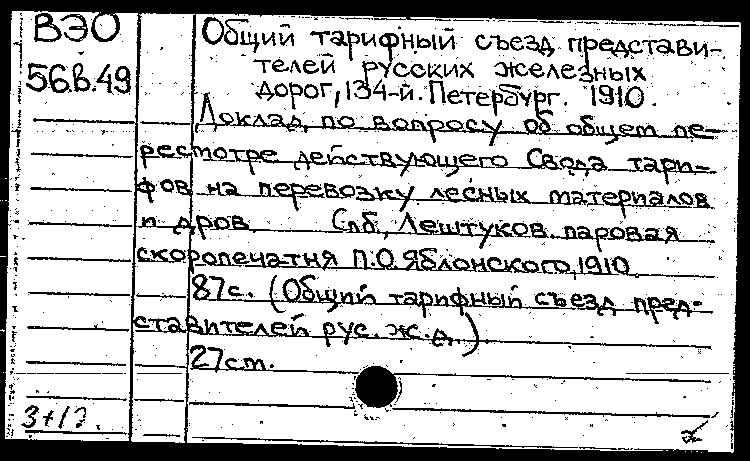 ВЭО
56.В.49
Общий тарифный съезд представи-
телей русских железных
дорог, 134-й. Петербург. 1910.
Доклад по вопросу об общем пе-
ресмотре действующего Свода тари-
фов на перевозку лесных материалов
и дров. Спб., Лештуков. паровая
скоропечатня П.О. Яблонского, 1910.
87с. (Общий тарифный съезд пред-
ставителей рус. ж.д.)
27см.